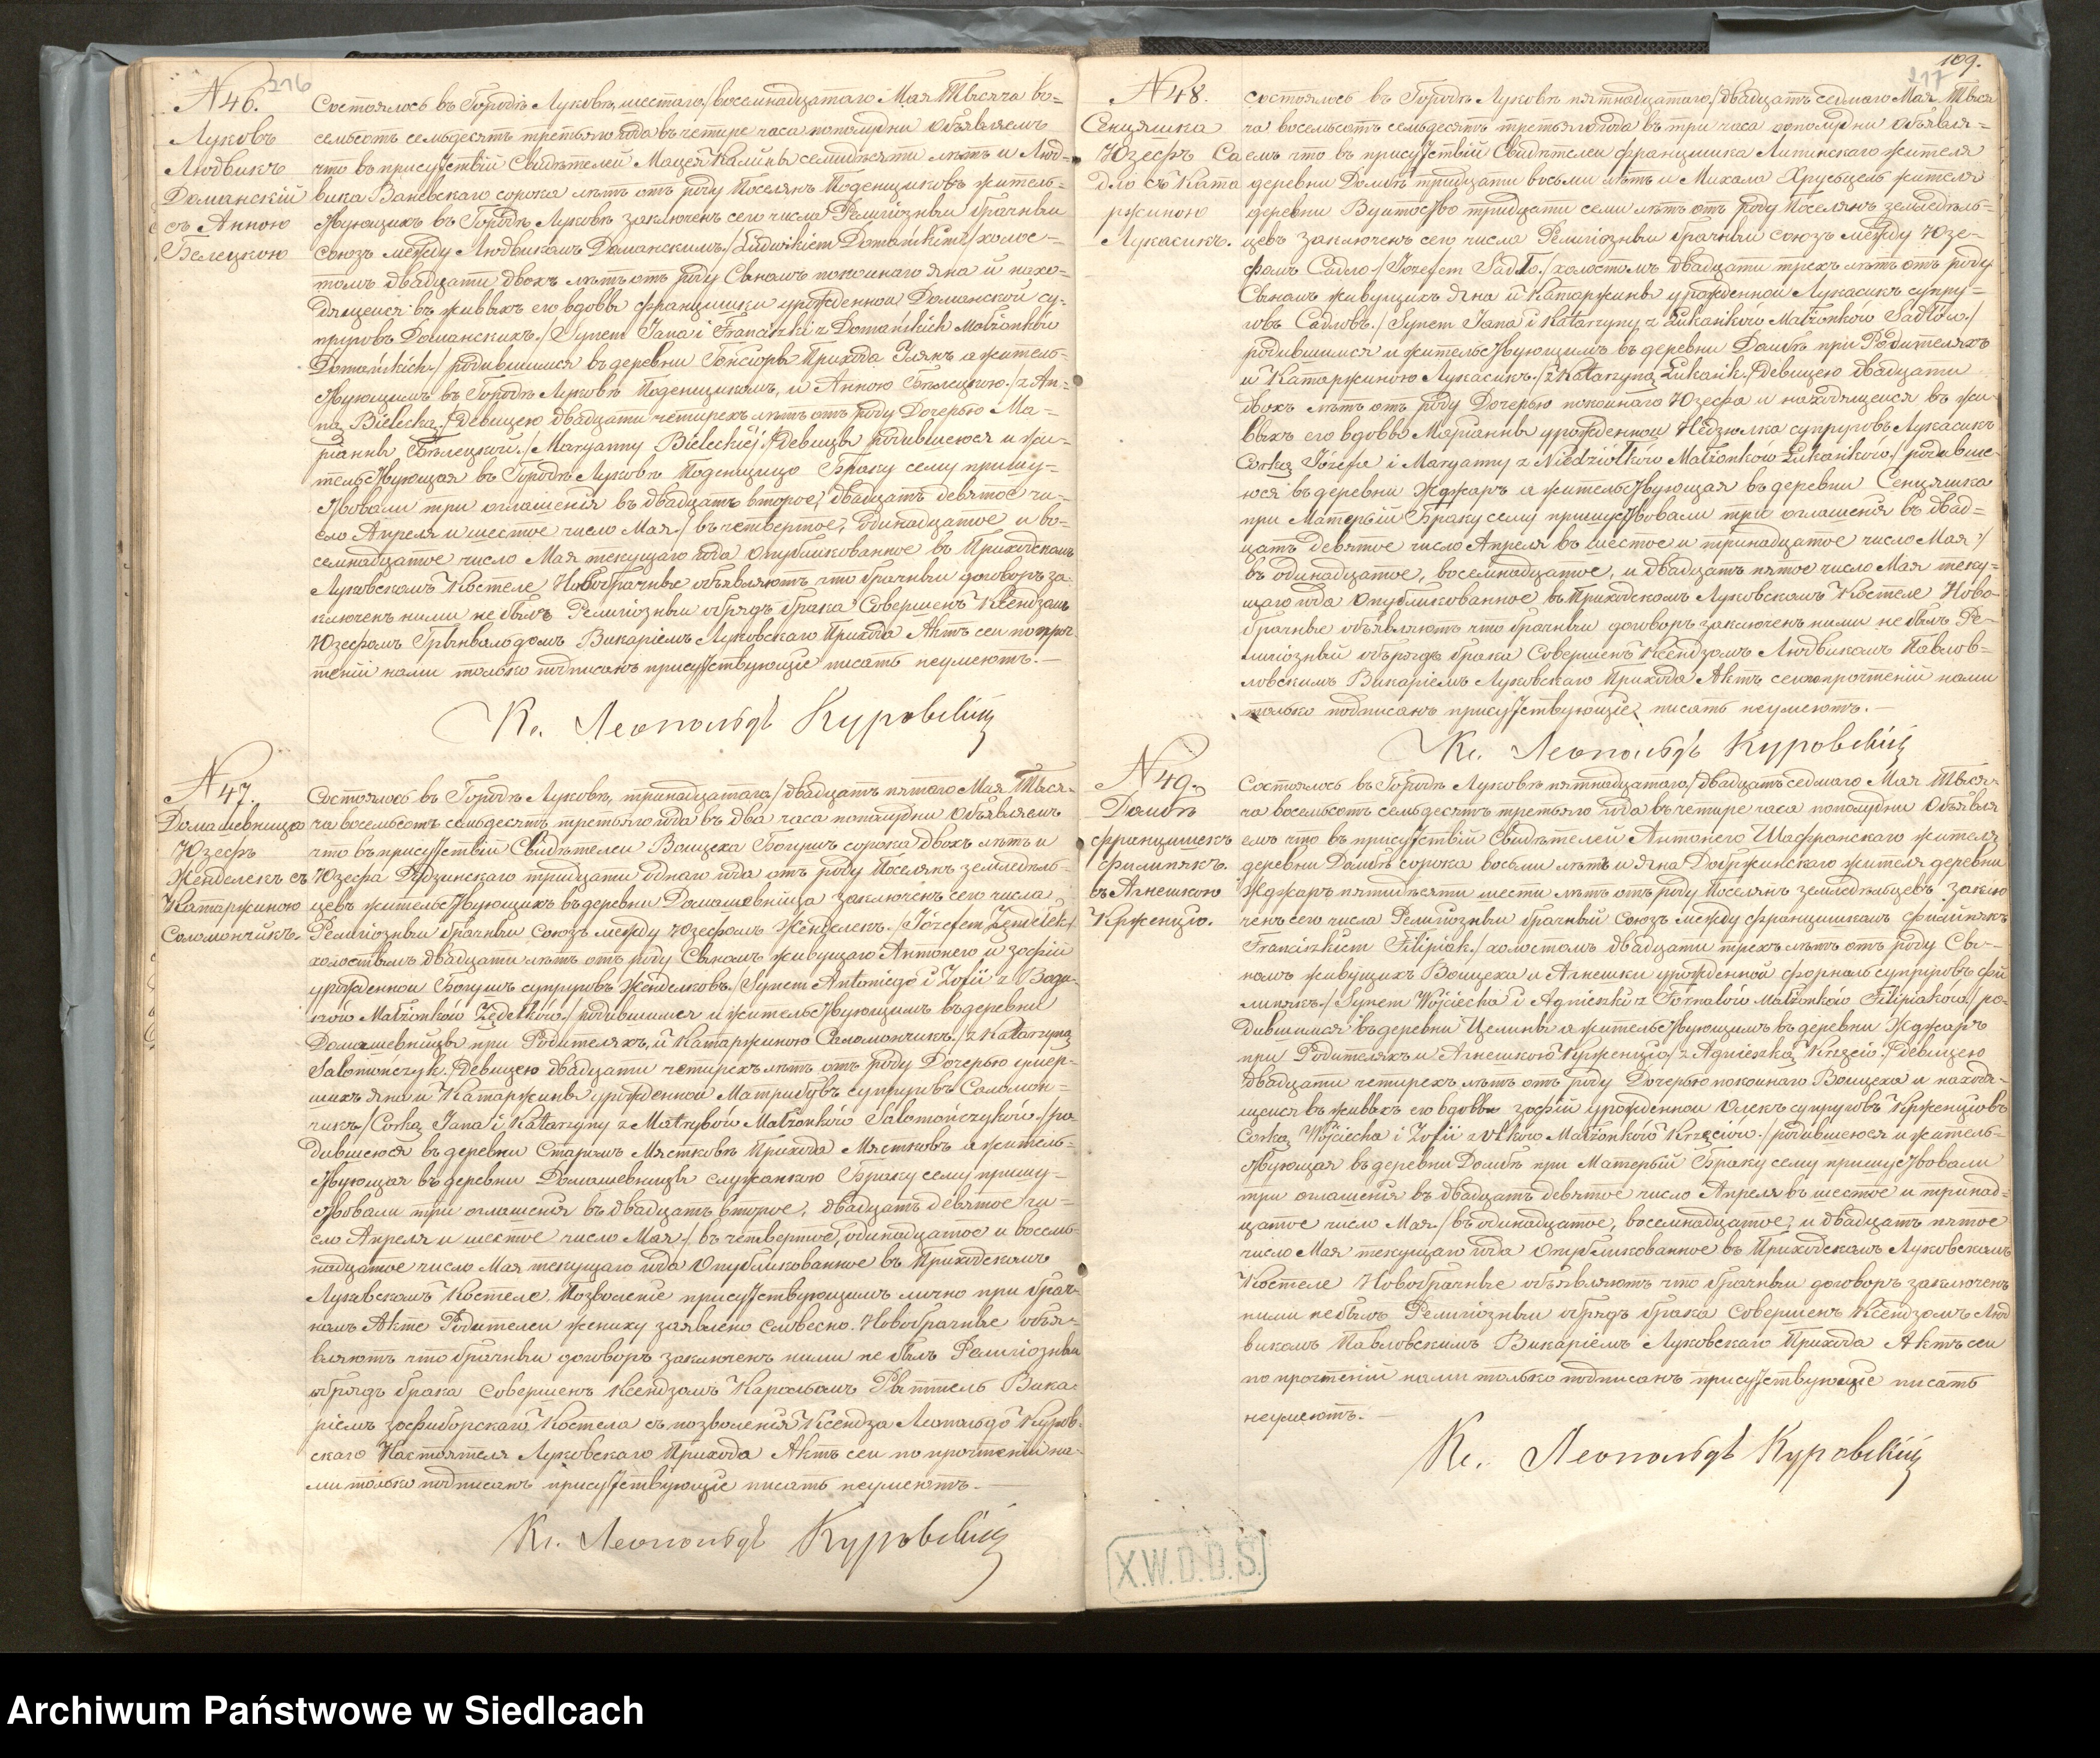 216
N 46.
Луковъ
Людвикъ
Доманскій
съ Анною
Белецкою
Состоялось въ Городѣ Луковѣ, шестаго/восемнадцатаго Мая Тысяча во=
семьсотъ семьдесятъ третьяго года въ четыре часа пополудни Объявляемъ
что въ присутствіи Свидѣтелей Мацея Калины семидѣсяти лѣтъ и Люд=
вика Ваневскаго сорока лѣтъ отъ роду Поселянъ Поденщиковъ житель=
ствующихъ въ Городѣ Луковѣ заключенъ сего числа Религіозный брачный
союзъ между Людвикомъ Доманскимъ./Ludwikiem Domańskim/холос=
томъ двадцати двохъ лѣтъ отъ роду Сыномъ покойнаго Яна и нахо=
дящейся въ живыхъ его вдовы Францишки урожденной Доманской су=
пруговъ Доманскихъ./Synem Jana i Franciszki z Domańskich Małżonków
Domańskich./родившимся въ деревни Гонсіоры Прихода Улянъ а житель=
ствующимъ въ Городѣ Луковѣ Поденщикомъ, и Анною Бѣлецкою./z An=
ną Bielecką./Девицею двадцати четирехъ лѣтъ отъ роду Дочерью Ма=
ріанны Бѣлецкой./Maryanny Bieleckiéj./девицы родившеюся и жи=
тельствующая въ Городѣ Луковѣ Поденщицо Браку сему пришу=
ствовали три оглашенія въ двадцать второе, двадцать девятое чи=
сло Апреля и шестое число Мая./въ четвертое, одинадцатое и во=
семнадцатое число Мая текущаго года Опубликованное въ Приходскомъ
Луковскомъ Костеле Новобрачные объявляютъ что брачный договоръ за=
ключенъ ними не былъ Религіозный обрядъ брака Совершенъ Ксендзомъ
Юзефомъ Грынвальдомъ Викаріемъ Луковскаго Прихода Актъ сей по проч=
теніи нами только подписанъ присутствующіе писать неумеютъ.—
Кс. Леопольдъ Куровскій
N 47.
Домашевница
Юзефъ
Женделекъ съ
Катаржиною
Саломончикъ.
Состоялось въ Городѣ Луковѣ, тринадцатаго/двадцать пятаго Мая Тыся=
ча восемьсотъ семьдесятъ третьяго года въ два часа пополудни Объявляемъ
что въ присутствіи Свидѣтелей Воицеха Боцунь сорока двохъ лѣтъ и
Юзефа Дудзинскаго тридцати одного года отъ роду Поселянъ земледѣль=
цевъ жительствующихъ въ деревни Домашевница заключенъ сего числа
Религіозный брачный союзъ между Юзефомъ Женделекъ./Józefem Zędelek/
холостымъ двадцати лѣтъ отъ роду Сыномъ живущаго Антонего и Зофіи
урожденной Боцунъ супруговъ Женделковъ./Synem Antoniego i Zofii z Bocu=
niów Małżonków Zędelków./родившимся и жительствующимъ въ деревни
Домашевницы при Родителяхъ, и Катаржиною Саломончикъ./z Katarzyną
Salomończyk./Девицею двадцати четирехъ лѣтъ отъ роду Дочерью умер=
шихъ Яна и Катаржины урожденной Матрибувъ супруговъ Саломон=
чикъ/Córką Jana i Katarzyny z Matrybów Małżonków Salomończyków./ро=
дившеюся въ деревни Старомъ Мястковѣ Прихода Мястковъ а житель=
ствующая въ деревни Домашевницы служанкою Браку сему пришу=
ствовали три оглашенія въ двадцать второе, двадцать девятое чи=
сло Апреля и шестое число Мая/въ четвертое, одинадцатое и восем=
надцатое число Мая текущаго года Опубликованное въ Приходскомъ
Луковскомъ Костеле. Позволеніе присутствующимъ лично при брач=
номъ Акте Родителей жениху заявлено словесно. Новобрачные объя=
вляютъ что брачный договоръ заключенъ ними не былъ Религіозный
обрядъ брака Совершенъ Ксендзомъ Карольомъ Рыттель Вика=
ріемъ Зофиборскаго Костела съ позволенія Ксендза Леопольда Куров=
скаго Настоятеля Луковскаго Прихода Актъ сей по прочтеніи на=
ми только подписанъ присутствующіе писать неумеютъ.—
Кс. Леопольдъ Куровскій
109.
217
N 48.
Сенцяшка
Юзефъ Са
дло съ Ката
ржиною
Лукасикъ.
состоялось въ Городѣ Луковѣ пятнадцатаго/двадцать седмаго Мая Тыся
ча восемьсотъ семьдесятъ третьяго года въ три часа пополудни Объявля=
емъ что въ присутствіи Свидѣтелей Францишка Липинскаго жителя
деревни Домбѣ тридцати восьми лѣтъ и Михала Хрусьцель жителя
деревни Вуитоство тридцати семи лѣтъ отъ роду Поселянъ земледѣль=
цевъ заключенъ сего числа Религіозный брачный союзъ между Юзе=
фомъ Садло/Jozefem Sadło./холостомъ двадцати трехъ лѣтъ отъ роду
Сыномъ живущихъ Яна и Катаржины урожденной Лукасикъ супру=
говъ Садловъ./Synem Jana i Katarzyny z Łukasików Małżonków Sadłów./
родившимся и жительствующимъ въ деревни Домбѣ при Родителяхъ
и Катаржиною Лукасикъ./z Katarzyną Łukasik./Девицею двадцати
двохъ лѣтъ отъ роду Дочерью покойнаго Юзефа и находящейся въ жи=
выхъ его вдовы Маріанны урожденной Недзюлка супруговъ Лукасикъ
Córką Józefa i Maryanny z Niedziołków Małżonków Łukasików./родивше=
юся въ деревни Жджаръ а жительствующая въ деревни Сенцяшка
при Матерьіи Браку сему пришуствовали три оглашенія въ двад=
цать девятое число Апреля въ шестое и тринадцатое число Мая/
въ одинадцатое, восемнадцатое, и двадцать пятое число Мая теку=
щаго года Опубликованное въ Приходскомъ Луковскомъ Костеле Ново=
брачные объявляютъ что брачный договоръ заключенъ ними не былъ Ре=
лигіозный объряде брака Совершенъ Ксендзомъ Людвикомъ Павлов=
ловскимъ Викаріемъ Луковскаго Прихода Актъ сей по прочтеніи нами
только подписанъ присутствующіе писать неумеютъ.—
Кс. Леопольдъ Куровскій
N 49.
Домбѣ
Францишекъ
Филипякъ.
съ Агнешкою
Крженцю.
Состоялось въ Городѣ Луковѣ пятнадцатаго/двадцать седмаго Мая Тыся=
ча восемьсотъ семьдесятъ третьяго года въ четыре часа пополудни Объявля
емъ что въ присутствіи Свидѣтелей Антонего Шафранскаго жителя
деревни Домбѣ сорока восьми лѣтъ и Яна Добржинскаго жителя деревни
Жджаръ пятидѣсяти шести лѣтъ отъ роду Поселянъ земледѣльцевъ заклю
ченъ сего числа Религіозный брачный союзъ между Францишкомъ Филипякъ
Franciszkiem Filipiak./холостомъ двадцати трехъ лѣтъ отъ роду Сы=
номъ живущихъ Воицеха и Агнешки урожденной Форналь супруговъ Фи
липякъ./Synem Wojciecha i Agnieszki z Fornalów Małżonków Filipiaków./ро=
дившимся въ деревни Целины а жительствующимъ въ деревни Жджаръ
при Родителяхъ и Агнешкою Крженцю/z Agnieszką Krzęcio./Девицею
двадцати четирехъ лѣтъ отъ роду Дочерью покойнаго Воицеха и находя=
щейся въ живыхъ его вдовы Зофіи урожденной Олекъ супруговъ Крженцювъ
Córką Wojciecha i Zofii z Olków Małżonków Krzęciów./родившеюся и житель=
ствующая въ деревни Домбѣ при Матерьіи Браку сему пришуствовали
три оглашенія въ двадцать девятое число Апреля въ шестое и тринад=
цатое число Мая./въ одинадцатое, восемнадцатое, и двадцать пятое
число Мая текущаго года Опубликованное въ Приходскомъ Луковскомъ
Костеле Новобрачные объявляютъ что брачный договоръ заключенъ
ними не былъ Религіозный обрядъ брака Совершенъ Ксендзомъ Люд
викомъ Павловскимъ Викаріемъ Луковскаго Прихода Актъ сей
по прочтеніи нами только подписанъ присутствующіе писать
неумеютъ.—
Кс. Леопольдъ Куровскій
X.W.D.D.S.
Archiwum Państwowe w Siedlcach